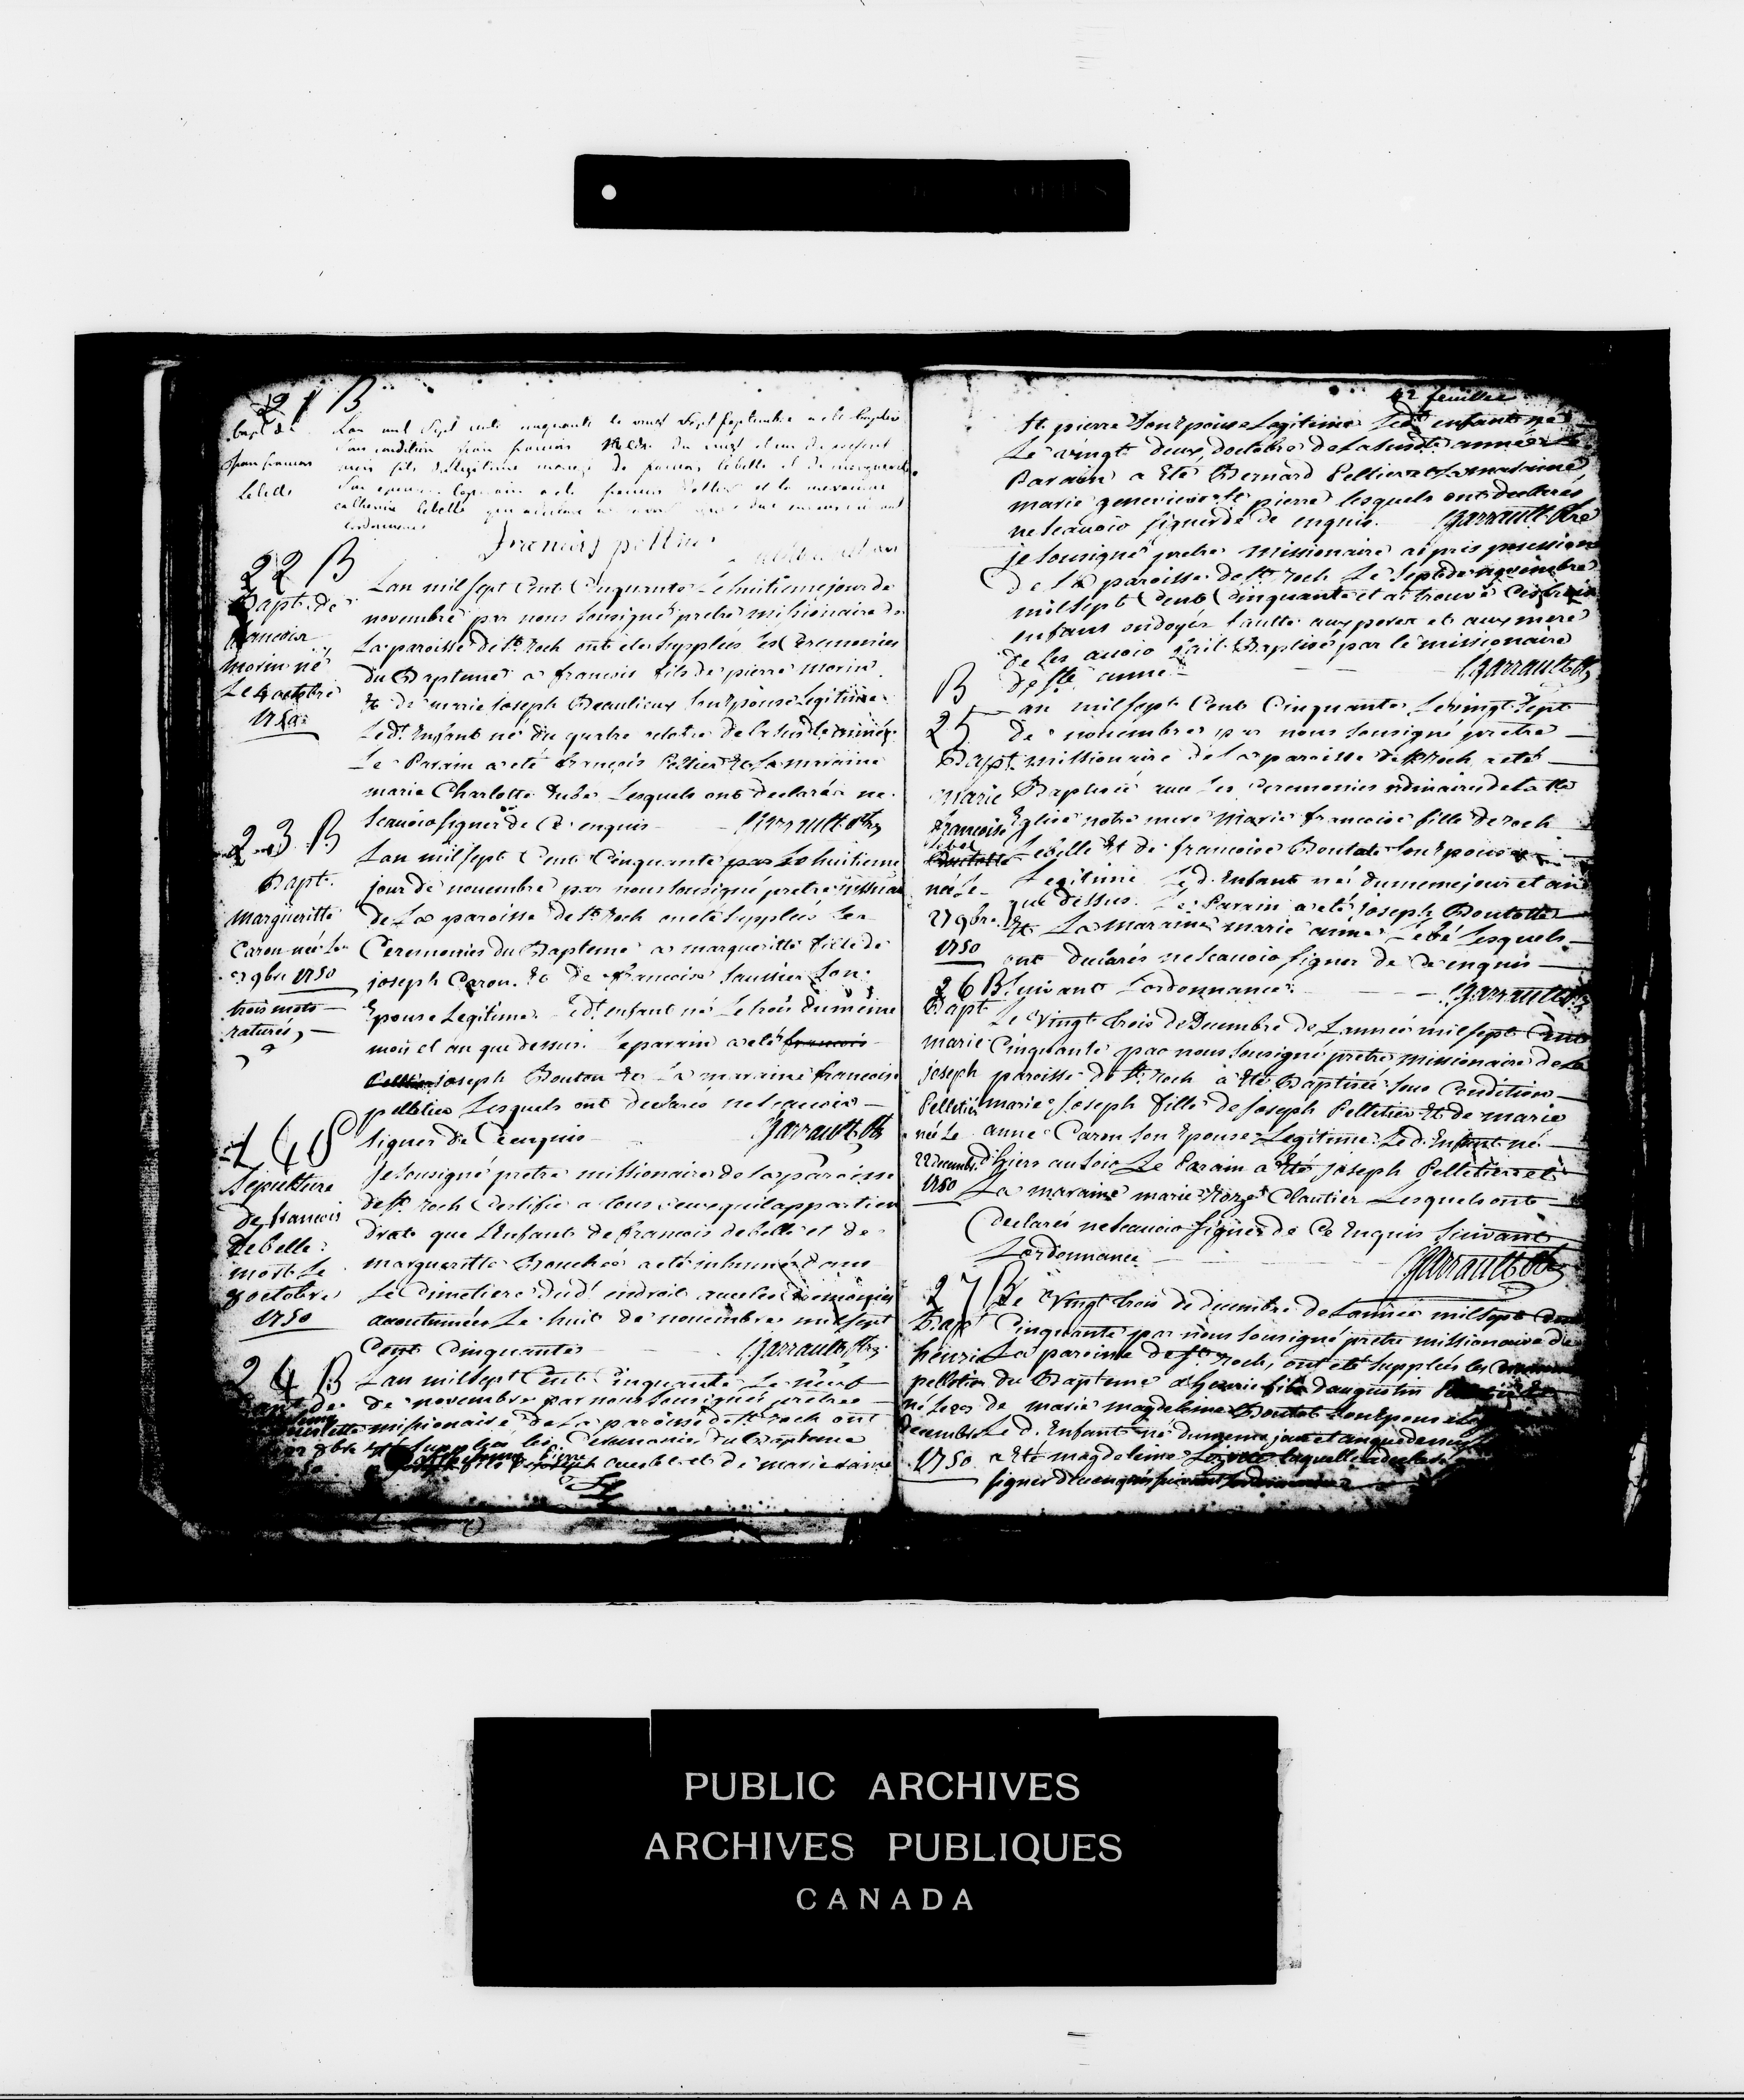 21 B
bapt de
jean francois
Lebelle
Lan mil Sept cent cinquante le vingt Sept Septembre a ete baptisé
sous condition jean francois
mois fils de legitime mariage de francois lebelle et de marguerite
son epouse le parain a ete francois et la maraine
catherine lebelle
francois pelletier
22 B
Bapt. de
francois
morin né
Le 4 octobre
1750
Lan mil sept Cent Cinquante Le huitieme jour de
novembre par nous Sousigné pretre missionaire de
La paroisse de St. Roch ont eté Supplées les Ceremonies
du Baptume a francois fils de pierre morin
& de marie Joseph Beaulieux Son Epouse Legitime
Ledt. Enfant né du quatre octobre de la susdte année
Le Parain a eté françois Pellier & La maraine
marie Charlotte Dubé Lesquels ont declarés ne
Scauoir signer de Ce enquis Garrault Ptre
23 B
Bapt.
margueritte
Caron née Le
3 9bre 1750
trois mots
raturés,
Lan mil sept Cent Cinquante par Le huitieme
jour de novembre par nous Sousigné pretre missionaire
de La paroisse de St. Roch on eté Supplées Les
Ceremonies du Bapteme a margueritte fille de
joseph Caron & de francoise Saussier Son
Epouse Legitime Ledt. enfant né Le trois du même
mois et an que dessus. Le parain a eté francois
Pelltier joseph Bouton & La maraine francoise
pelletier Lesquels ont declarés ne scauoir
signer de Ce enquis Garrault Ptre
14 S
Sepulture
de francois
de belle
mort Le
8 octobre
1750
Je Sousigné pretre missionaire de la paroisse
de St. Roch Certifie a tous ceux quil appartien
drat que L'enfant de francois debelle et de
margueritte Bouchée a eté inhumé dans
Le Cimetiere dudt. endroit auec les Ceremonies
accoutumées Le huit de nouembre mil sept
Cent Cinquante Garrault Ptre
24 B
Lan mil sept Cent Cinquante Le neuf
de novembre par nous Sousigné pretre
missionaire de La paroisse de St. Roch ont
eté Supplées les Ceremonies du Bapteme
fils de joseph ouellet et de marie saint
42 feuillet
St. pierre Son Epouse Legitime Ledt. enfant né
Le vingt deux d'octobre de La susdte année Le
Parain a Eté Bernard Pellier & La maraine
marie genevieve St. pierre lesquels ont declarés
ne scauoir signer de Ce enquis. Garrault Ptre
je Sousigné pretre missionaire ai pris possession
de La paroisse de St. Roch Le Sept de novembre
mil Sept Cent Cinquante et ai trouvé Ces trois
enfans ondoyés fautte aux peres et aux meres
de Les auoir fait Baptisé par le missionaire
de Ste. anne Garrault Ptre
B
25
Bapt.
marie
francoise
lebel
née Le
27 9bre
1750
Lan mil sept Cent Cinquante Le vingt Sept
de nouembre par nous Sousigné pretre
missionaire de La paroisse de St. Roch a eté
Baptisée auec Les Ceremonies ordinaires de la Ste
Eglise notre mere Marie francoise fille de roch
Lebelle Et de francoise Boutote Son Epouse
Legitime Led. Enfant né du meme jour et an
que dessus. Le Parain a eté Joseph Boutotte
Et La maraine marie anne Lebé Lesquels
ont declarés ne scauoir signer de Ce enquis
Suivant L'ordonnance. Garrault Ptre
26 B
Bapt
marie
joseph
Pelletier
née Le
22 decembre
1750
Le vingt trois de Decembre de L'année mil sept Cent
Cinquante par nous Sousigné pretre missionaire de La
paroisse de St. Roch a Eté Baptisée sous Condition
marie Joseph fille de Joseph Pelletier Et de marie
anne Caron Son Epouse Legitime. Led. Enfant né
d'hiers au Soir Le Parain a Eté joseph Pelletier et
La maraine marie Cloutier Lesquels ont
declarés ne scauoir signer de Ce Enquis Suivant
L'ordonnance Garrault Ptre
27 B
Bapt
henrie
pelletier
né Le 23
decembre
1750
Le vingt trois de decembre de L'année mil sept Cent
Cinquante par nous Sousigné pretre missionaire de
La paroisse de St. Roch, ont eté Supplées les Ceremonies
du Bapteme a henrie fils d'augustin Pelletier Et
de marie magdelaine Boutot Son Epouse
Led. Enfant né du meme jour et an que dessus
a Eté magdeleine laquelle a declaré
signer de Ce enquis suivant L'ordonnance
PUBLIC ARCHIVES
ARCHIVES PUBLIQUES
CANADA